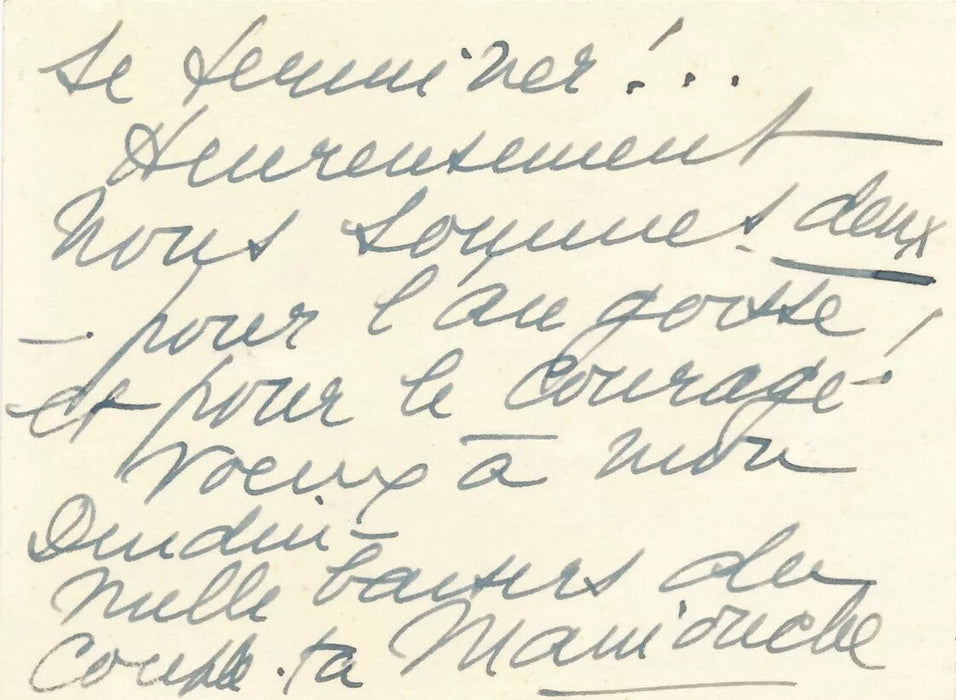 se terminer !...
Heureusement
nous sommes deux
- pour l'angoisse
et pour le courage !
Voeux à mon
Dindin -
Mille baisers du
Couple. ta Maniouche